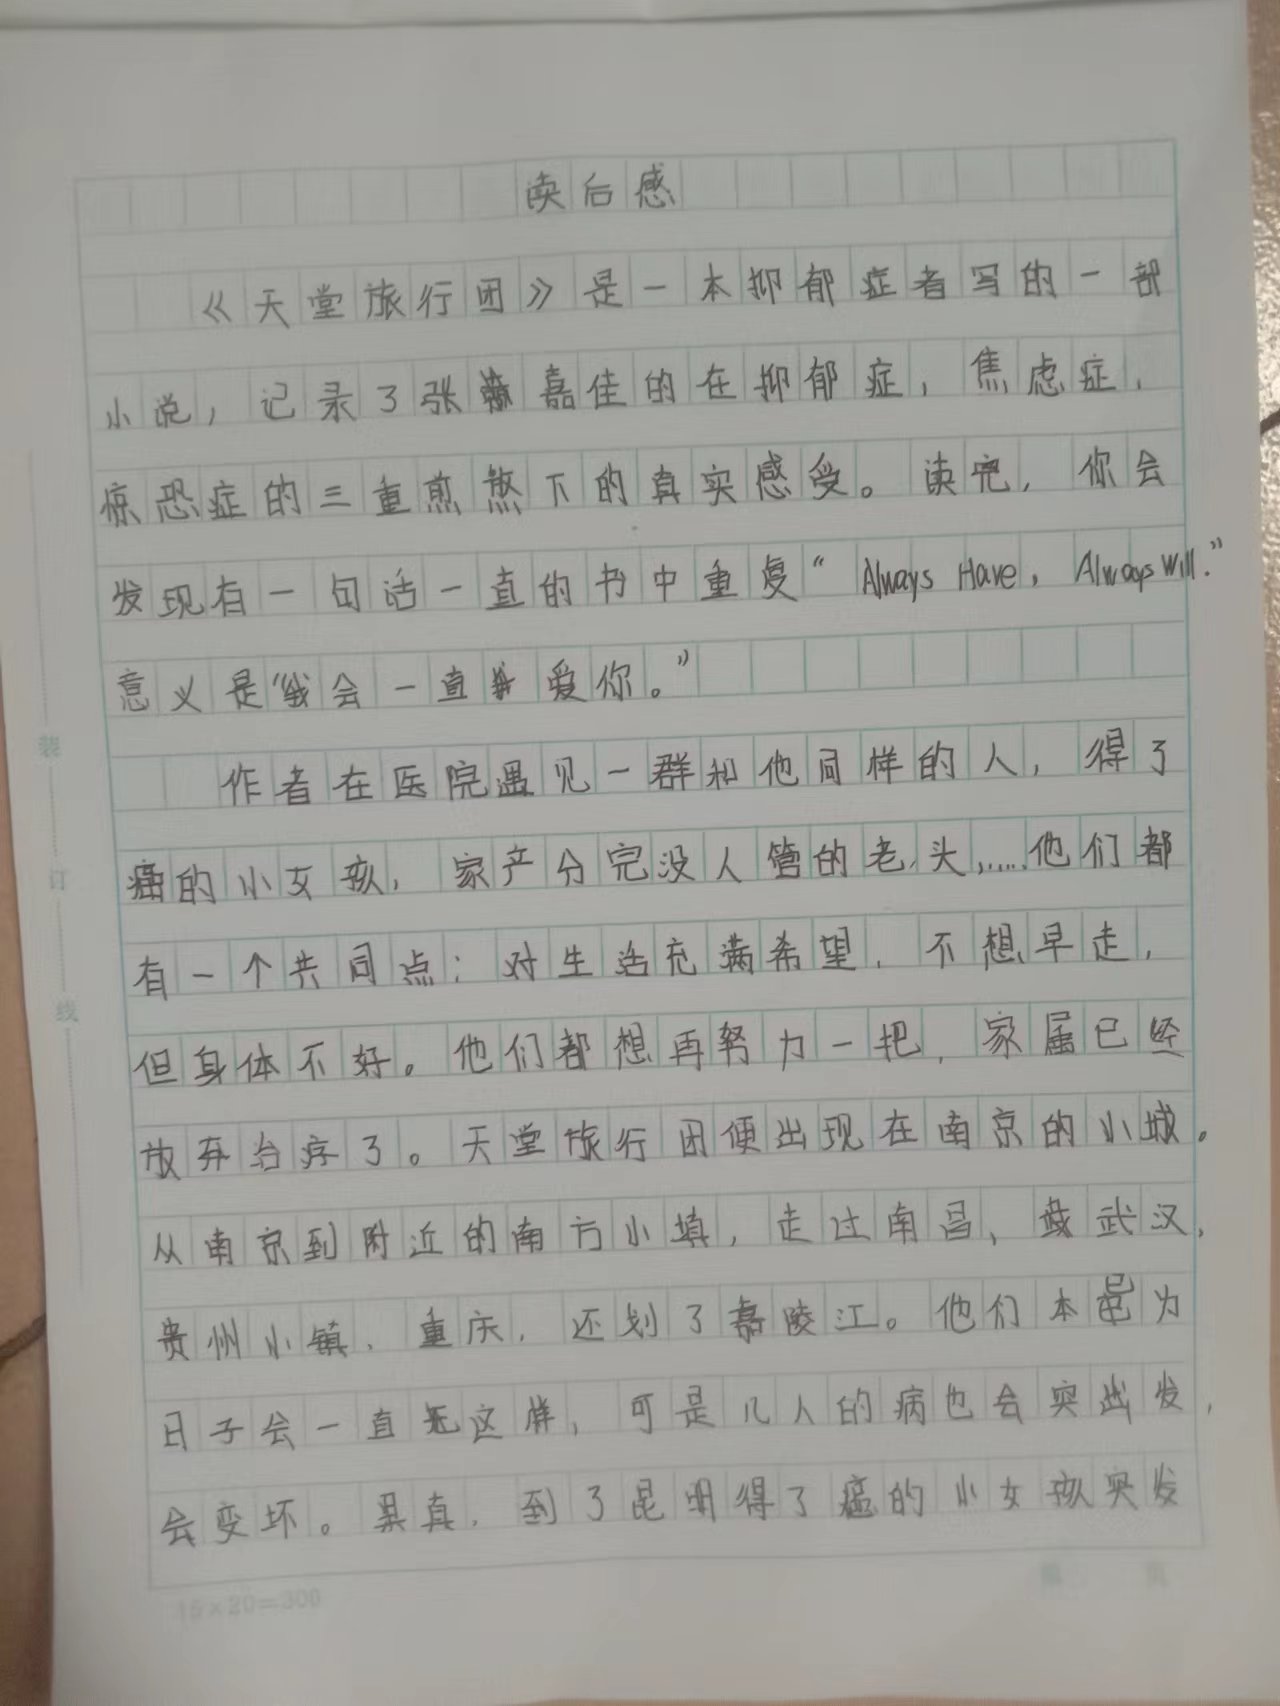 读后感
《天堂旅行团》是一本抑郁症者写的一部
小说，记录了张嘉佳的在抑郁症，焦虑症，
惊恐症的三重煎熬下的真实感受。读完，你会
发现有一句话一直的书中重复“Always Have，Always Will.”
意义是“我会一直爱你。”
作者在医院遇见一群和他同样的人，得了
癌的小女孩，家产分完没人管的老头，……他们都
有一个共同点：对生活充满希望，不想早走，
但身体不好。他们都想再努力一把，家属已经
放弃治疗了。天堂旅行团便出现在南京的小城。
从南京到附近的南方小填，走过南昌、武汉，
贵州小镇，重庆，还划了嘉陵江。他们本已为
日子会一直这样，可是几人的病也会突发，
会变坏。果真，到了昆明得了癌的小女孩突发
装
订
线
15×20=300
第 页